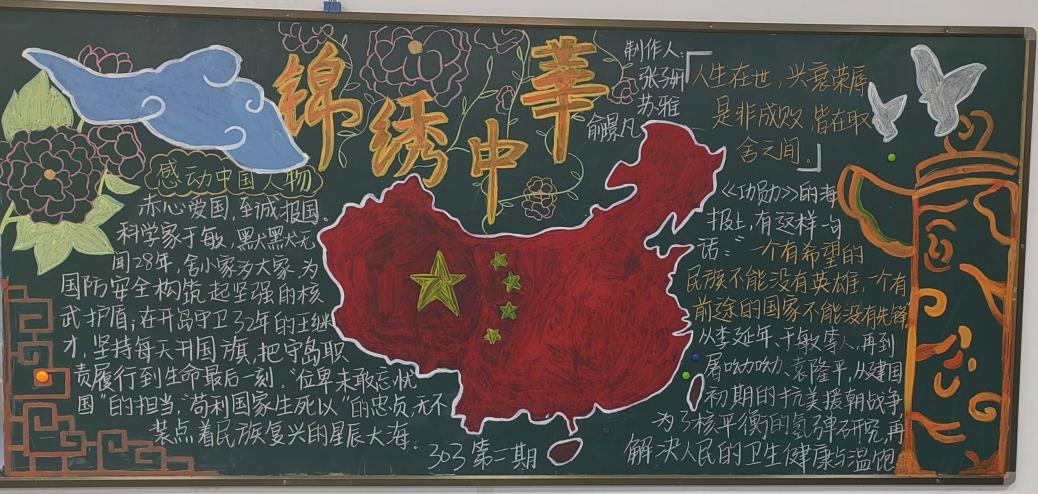 锦绣中華
制作人:
张子妍
苏雅
俞景凡
「人生在世，兴衰荣辱
是非成败，皆在取
舍之间。」
感动中国人物
赤心爱国，至诚报国。
科学家于敏，默默无
闻28年，舍小家为大家，为
国防安全构筑起坚强的核
武护盾；在开岛守卫32年的王继
才，坚持每天升国旗，把守岛职
责履行到生命最后一刻。“位卑未敢忘忧
国”的担当，“苟利国家生死以”的忠贞，无不
装点着民族复兴的星辰大海。
303第二期
《功勋》的海
报上，有这样一句
话：“一个有希望的
民族不能没有英雄，一个有
前途的国家不能没有先锋
从李延年、于敏等人，再到
屠呦呦、袁隆平，从建国
初期的抗美援朝战争，
为了核平衡的氢弹研究，再
解决人民的卫生健康与温饱